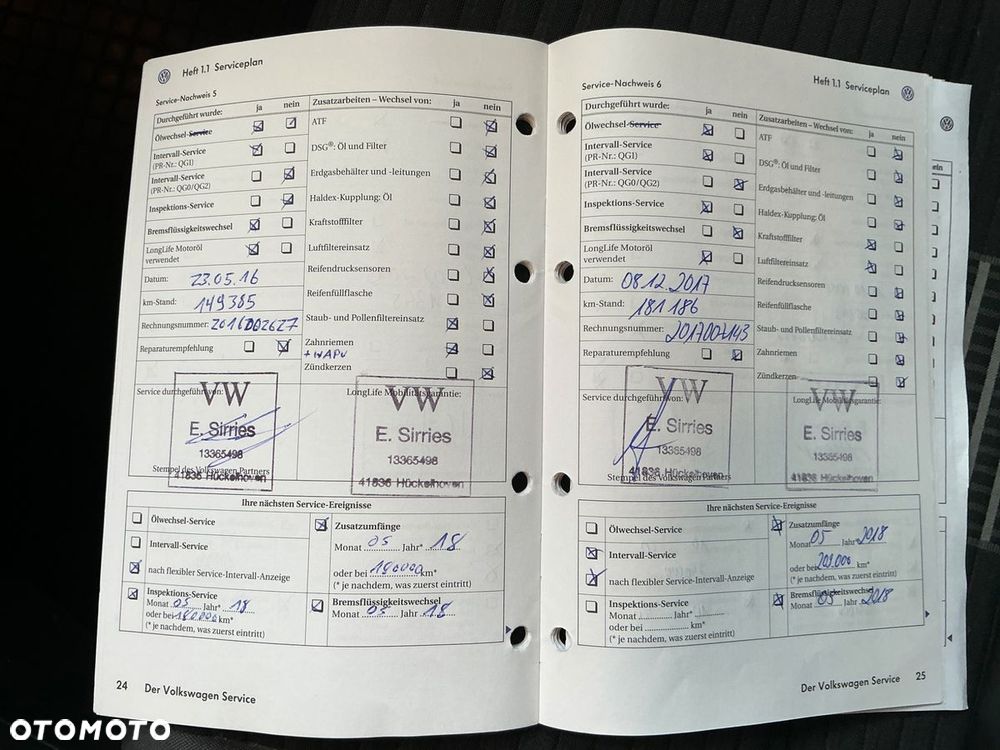 Heft 1.1 Serviceplan
Service-Nachweis 5
Durchgeführt wurde: ja nein
Ölwechsel-Service
Intervall-Service
(PR-Nr.: QGI)
Intervall-Service
(PR-Nr.: QG0/QG2)
Inspektions-Service
Bremsflüssigkeitswechsel
LongLife Motoröl
verwendet
Datum: 23.05.16
km-Stand: 149385
Rechnungsnummer: 2016002627
Reparaturempfehlung
Zusatzarbeiten – Wechsel von: ja nein
ATF
DSG®: Öl und Filter
Erdgasbehälter und -leitungen
Haldex-Kupplung: Öl
Kraftstofffilter
Luftfiltereinsatz
Reifendrucksensoren
Reifenfüllflasche
Staub- und Pollenfiltereinsatz
Zahnriemen
+ WAPU
Zündkerzen
Service durchgeführt von:
VW
E. Sirries
13365498
Stempel des Volkswagen Partners
41836 Hückelhoven
LongLife Mobilitätsgarantie:
VW
E. Sirries
13365498
41836 Hückelhoven
Ihre nächsten Service-Ereignisse
Ölwechsel-Service
Intervall-Service
nach flexibler Service-Intervall-Anzeige
Inspektions-Service
Monat 05 Jahr* 18
oder bei 180000 km*
(* je nachdem, was zuerst eintritt)
Zusatzumfänge
Monat 05 Jahr* 18
oder bei 180000 km*
(* je nachdem, was zuerst eintritt)
Bremsflüssigkeitswechsel
Monat 05 Jahr 18
24 Der Volkswagen Service
Heft 1.1 Serviceplan
Service-Nachweis 6
Durchgeführt wurde: ja nein
Ölwechsel-Service
Intervall-Service
(PR-Nr.: QGI)
Intervall-Service
(PR-Nr.: QG0/QG2)
Inspektions-Service
Bremsflüssigkeitswechsel
LongLife Motoröl
verwendet
Datum: 08.12.2017
km-Stand: 181 186
Rechnungsnummer: 2017007143
Reparaturempfehlung
Zusatzarbeiten – Wechsel von: ja nein
ATF
DSG®: Öl und Filter
Erdgasbehälter und -leitungen
Haldex-Kupplung: Öl
Kraftstofffilter
Luftfiltereinsatz
Reifendrucksensoren
Reifenfüllflasche
Staub- und Pollenfiltereinsatz
Zahnriemen
Zündkerzen
Service durchgeführt von:
VW
E. Sirries
13365498
Stempel des Volkswagen Partners
41836 Hückelhoven
LongLife Mobilitätsgarantie:
VW
E. Sirries
13365498
41836 Hückelhoven
Ihre nächsten Service-Ereignisse
Ölwechsel-Service
Intervall-Service
nach flexibler Service-Intervall-Anzeige
Inspektions-Service
Monat Jahr*
oder bei km*
(* je nachdem, was zuerst eintritt)
Zusatzumfänge
Monat 05 Jahr* 2018
oder bei km*
(* je nachdem, was zuerst eintritt)
Bremsflüssigkeitswechsel
Monat 05 Jahr 2018
Der Volkswagen Service 25
OTOMOTO